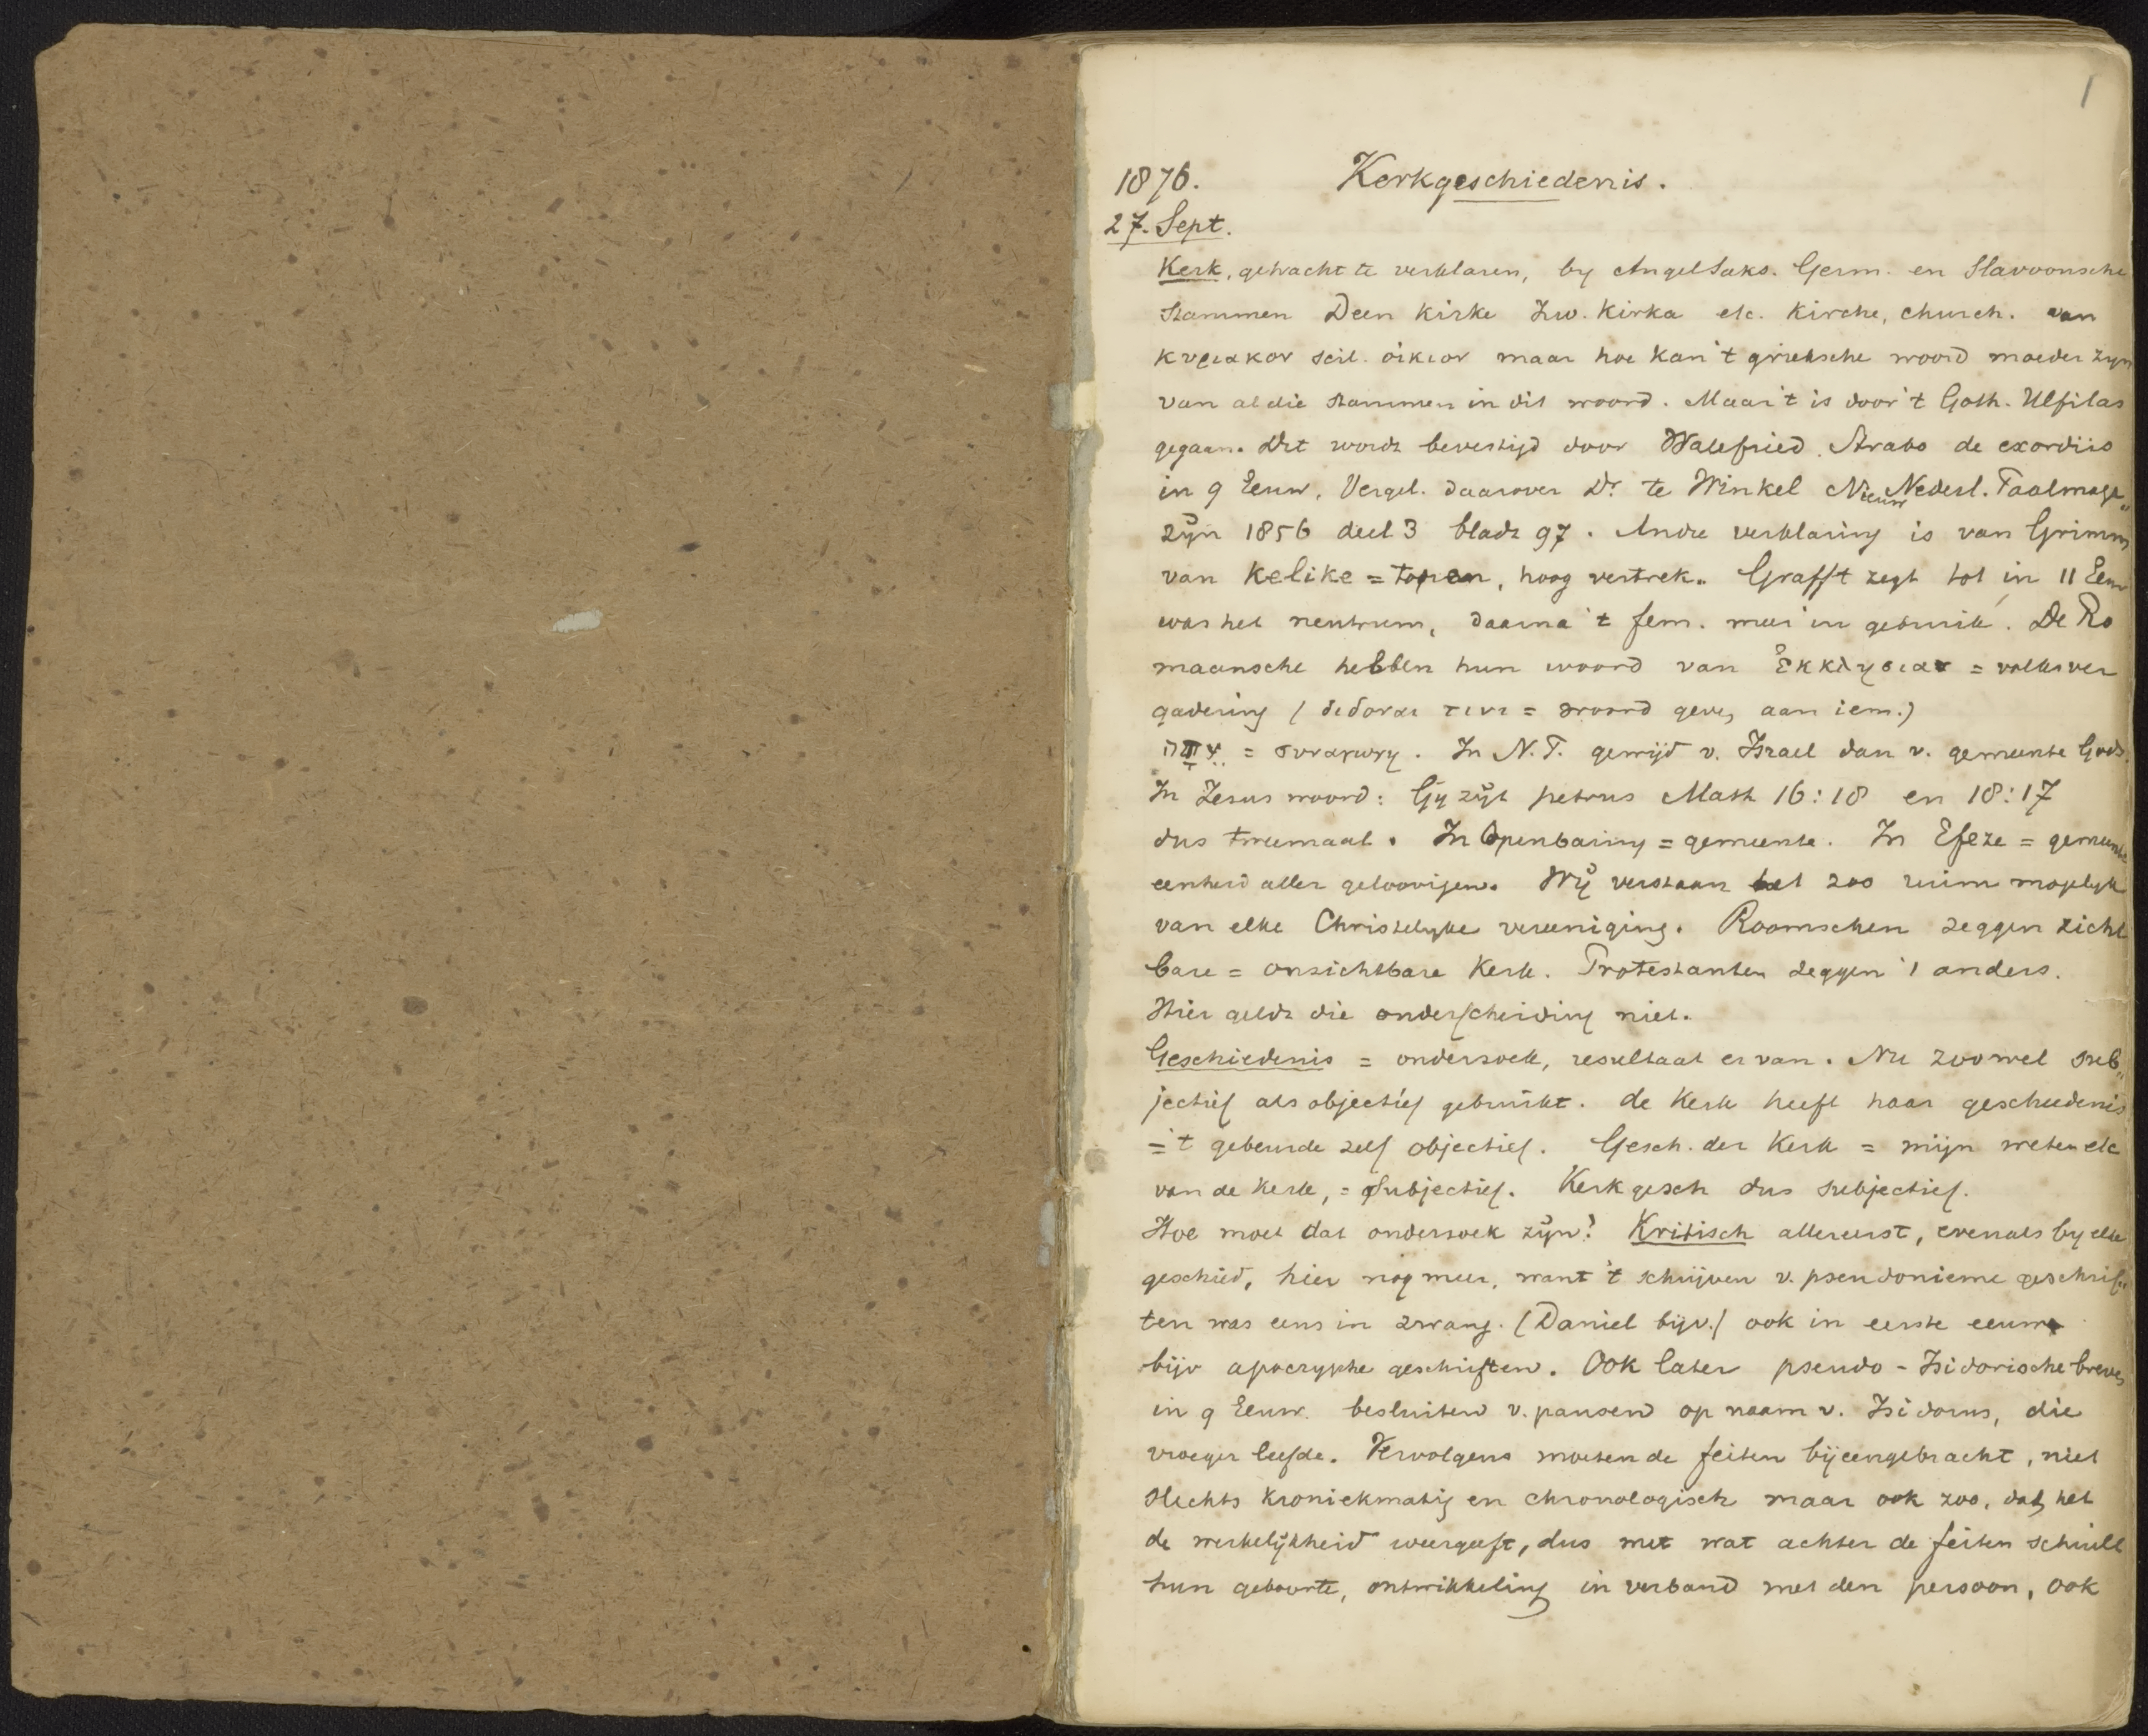 1
1876. Kerkgeschiedenis.
27. Sept.
Kerk, getracht te verklaren, by AngelSaks. Germ. en Slavoonsche
stammen Deen Kirke Zw. Kirka etc. Kirche, church. van
κυριακον scil. οἰκιον maar hoe kan 't grieksche woord moeder zyn
van al die stammen in dit woord. Maar 't is door 't Goth. Ulfilas
gegaan. Dit wordt bevestigd door Walefried Strabo de exordiis
in 9 Eeuw. Vergel. daarover Dr. te Winkel Nieuw Nederl. Taalmaga„
zÿn 1856 deel 3 bladz 97. Andre verklaring is van Grimm
van kelike = , hoog vertrek. Grafft zegt tot in 11 Eeuw
was het neutrum, daarna 't fem. meer in gebruik. De Ro
maansche hebben hun woord van Ἐκκλησιαν = volksver
gadering ( διδοναι τινι = woord geven aan iem.)
= συναγωγη. In N.T. gewijd v. Israel dan v. gemeente Gods.
In Jezus woord: Gy zÿt petrus Matth 16:18 en 18:17
dus tweemaal. In Openbaring = gemeente. In Efeze = gemeente
eenheid aller geloovigen. Wÿ verstaan het zoo ruim mogelyk
van elke Christelyke vereeniging. Roomschen zeggen zicht
bare = onzichtbare Kerk. Protestanten zeggen 't anders.
Hier geldt die onderscheiding niet.
Geschiedenis = onderzoek, resultaat er van. Nu zoowel sub„
jectief als objectief gebruikt. de Kerk heeft haar geschiedenis
= 't gebeurde zelf objectief. Gesch. der Kerk = mijn weten etc
van de Kerk, = Subjectief. Kerkgesch dus subjectief.
Hoe moet dat onderzoek zÿn? Kritisch allereerst, evenals by elke
geschied, hier nog meer, want 't schrijven v. pseudonieme geschrif„
ten was eens in zwang. (Daniel bijv.) ook in eerste eeuw
bijv apocryphe geschriften. Ook later pseudo-Isidorische breven
in 9 Eeuw. besluiten v. pausen op naam v. Isidorus, die
vroeger leefde. Vervolgens moeten de feiten bÿeengebracht, niet
slechts kroniekmatig en chronologisch maar ook zoo, dat het
de werkelÿkheid weergeeft, dus met wat achter de feiten schuilt
hun geboorte, ontwikkeling in verband met den persoon, ook